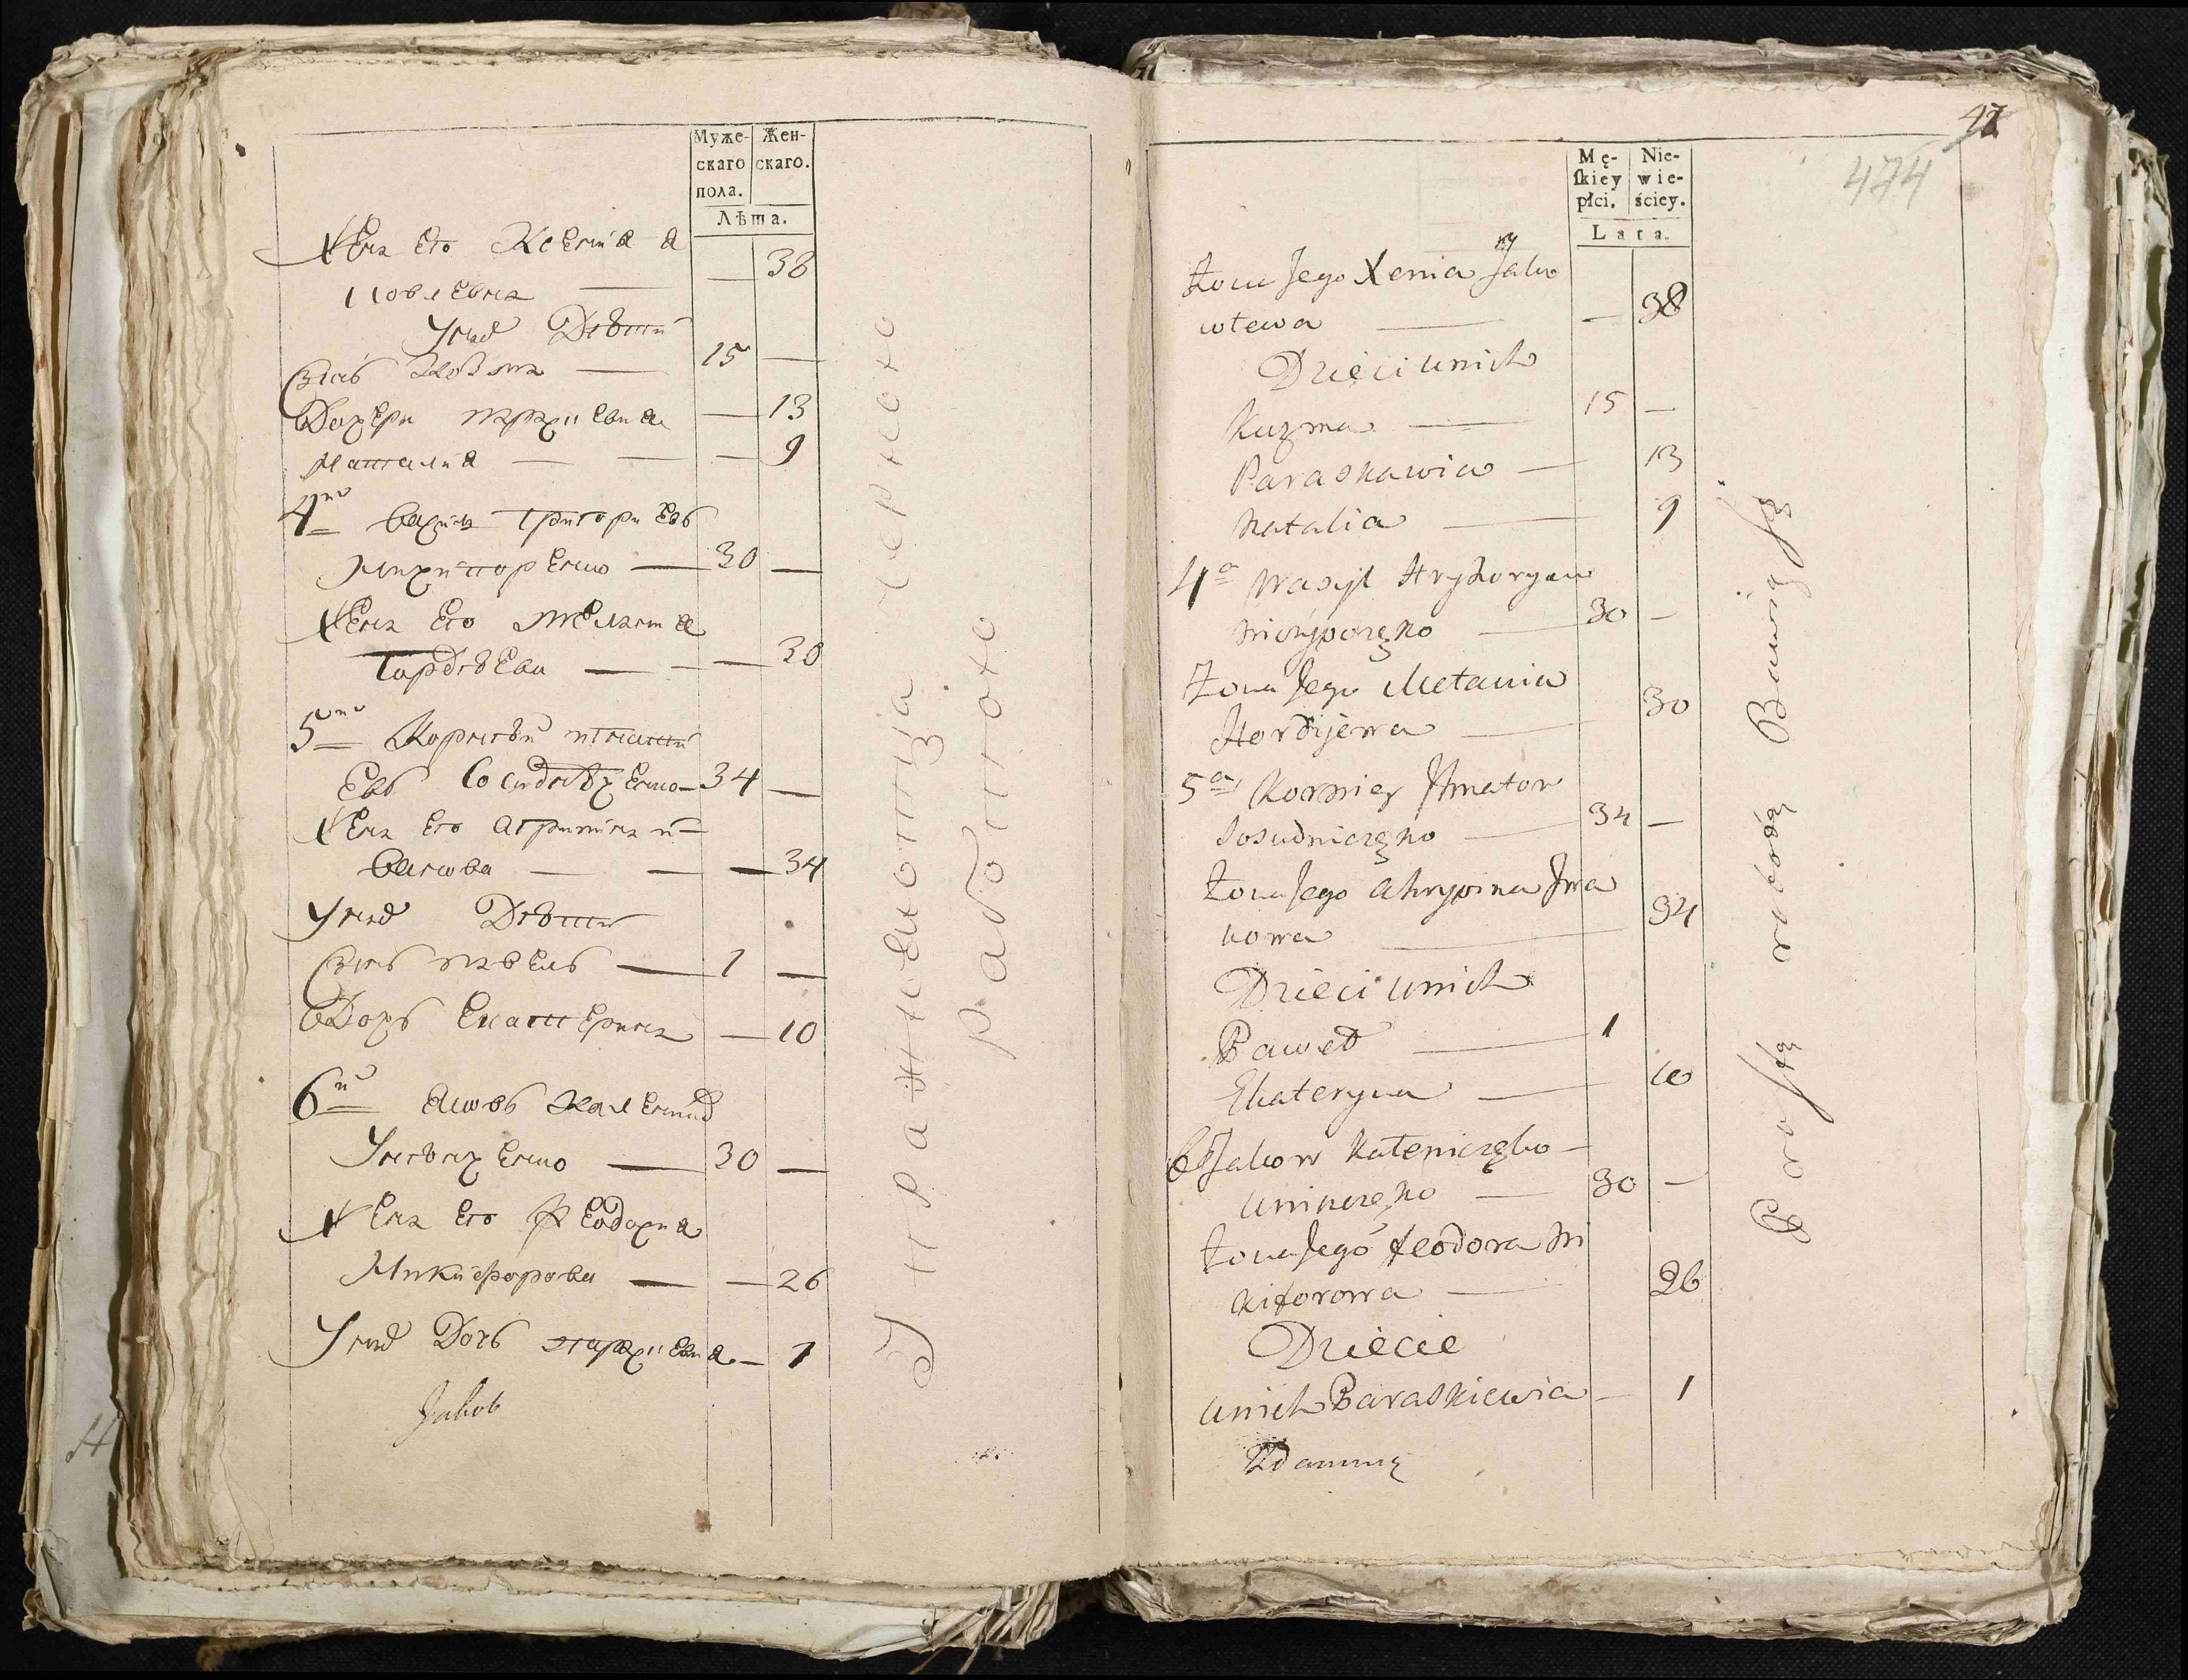 Муже-
скаго
пола.
Жен-
скаго.
Лѣта.
Жена Его Ксения а
Иовлевна — — 38
У нихъ Дѣти
Сынъ Козма — 15 —
Дочери Параскевия — 13
Наталия — — — 9
4й Василь Григориевъ
Ничипоренко — 30 —
Жена Его Мелания
Гордѣева — — — 30
5й Корнѣй Игнати
Евъ Сосидниченко — 34 —
Жена Его Агрипина И
ванова — — — 34
У нихъ Дѣти
Сынъ Павелъ — 1 —
Дочь Екатерина — 10
6й Яковъ Калениковъ
30 —
Жена Его Феодора
Никифорова — — 26
У нихъ Дочь Параскевиа — 1
Jakob
Упражняются черною
работою
47
474
Mę-
skiey
płci.
Nie-
wie-
ściey.
Lata.
Żona Jego Xenia Jako
wlewa — — 38
Dzieci u nich
Kuzma — 15 —
Paraskawia — 13
Natalia — 9
4a Wasyl Hryhoryew
Niczyporęko — 30 —
Żona Jego Melania
Hordijewa — 30
5a Korniey Ihnatow
Sosudniczęko — 34 —
Żona Jego Ahrypina Iwa
nowa — 34
Dzieci u nich
Paweł — 1
Ekateryna — 10
6a Jakow Kaleniczęko —
30 —
Żona Jego Feodora Ni
kiforowa — 26
Dziecie
u nich Paraskiewia — 1
Prostą robotą Bawią się